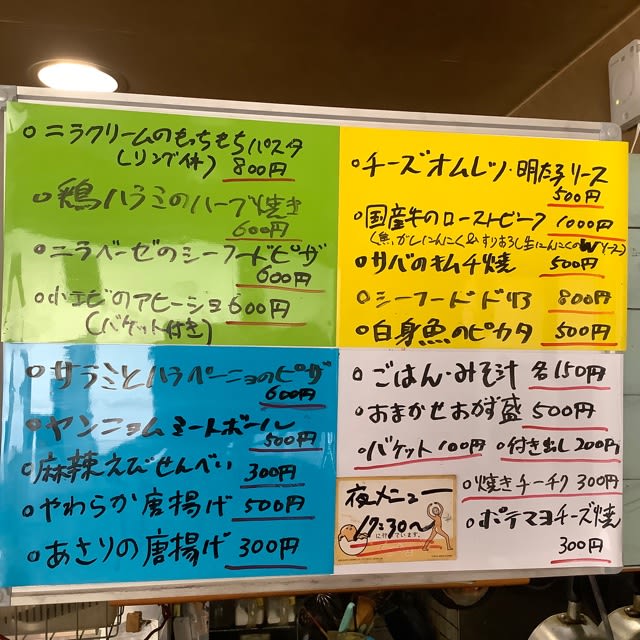 ○ニラクリームのもっちもちパスタ
(リング付) 800円
○鶏ハラミのハーブ焼き
600円
○ニラベーゼのシーフードピザ
600円
○小エビのアヒージョ 600円
(バケット付き)
○チーズオムレツ・明太子ソース
500円
○国産牛のローストビーフ 1000円
(焦がしにんにく&すりおろし生にんにくのWソース)
○サバのキムチ焼 500円
○シーフードドリア 800円
○白身魚のピカタ 500円
○サラミとハラペーニョのピザ
600円
○ヤンニョムミートボール
500円
○麻辣えびせんべい 300円
○やわらか唐揚げ 500円
○あさりの唐揚げ 300円
○ごはん・みそ汁 各150円
○おまかせおかず盛 500円
○バケット 100円 ○付き出し 200円
○焼きチーチク 300円
○ポテマヨチーズ焼
300円
夜メニュー
17:30〜